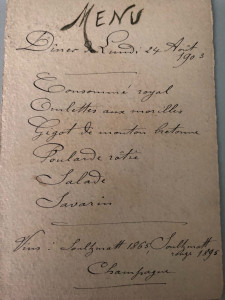 MENU
Dîner de Lundi 24 Août
1903
Consommé royal
Omelettes aux morilles
Gigot de mouton bretonne
Poularde rôtie
Salade
Savarin
Vins : Soultzmatt 1865 Soultzmatt
rouge 1895
Champagne